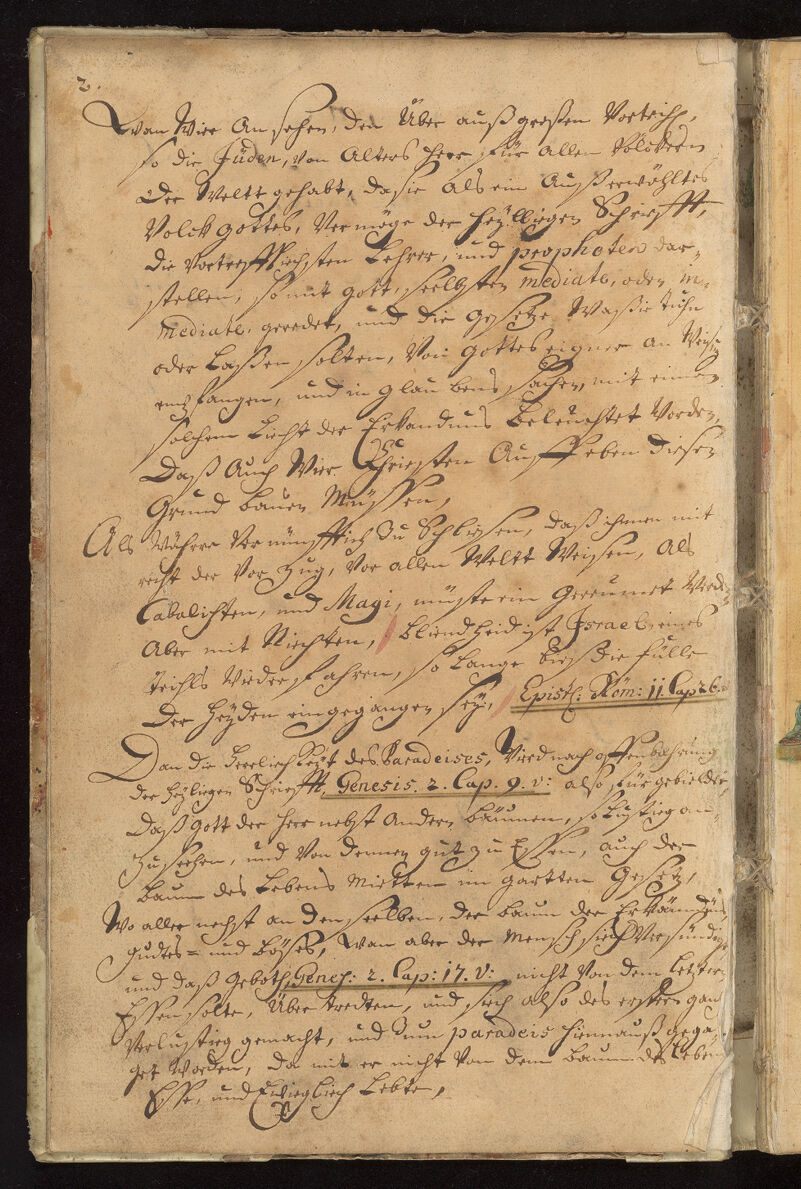 2.
Wan Wier Ansehen, den Über auß großen Vorteihl,
so die Jüden, von Alters Herr für allen Völckern
Der Weltt gehabt, da sie Als ein Außerwöhltes
Volck gottes, Vermöge der heylliegen Schriefft,
die Vortrefflichsten Lehrer, und propheten dar-
stellen, so mit gott, seelbsten mediate, oder im-
mediate, geredet, und die gesetze Waß sie tuhn
oder Laßen solten, Von gottes eigner An Weisu
empfangen, und in glaubens sachen, mit einem
solchem Liecht der Erkandnus Beleuchtet Worden,
Daß Auch Wier Christen Auff eben diesen
Grund bauen Müssen,
Als Währe Vernünfftich zu Schliesen, daß ihnen mit
recht der Vorzug, Vor allen Weltt Weisen, Als
Cabalisten, und Magi, müste ein gereumet Werde
Aber mit Niechten, Bliendheid ist Israel eines
teihls Wiederfahren, so Lange bies die fülle
Der Heyden eingegangen sey, Epist: Röm: 11 Cap 26.
Dan die Herrliechkeyt des Paradeises, Wird nach offenbahrung
der heyliegen Schriefft, Genesis. 2. Cap. 9. v: also fürgebieldet,
Daß Gott der Herr nebst Andern bäumen, so Lustieg an-
zusechen, und Von dennen gutt zu Essen, auch den
baum des Lebens Mietten im gartten Gesetz,
Wo aller nechst an denseelben, der baum der Erkändnüs
gudtes= und Böses, Wan aber der Mensch siech Versündig
und daß Geboth, Genes: 2. Cap: 17. V: nicht Von dem Letzter
Essen solte, Über tredten, und siech also des ersten gan
Verlustieg gemacht, und zum paradeis hiennauß gega
get Worden, da mit er nicht Von dem baum des Leben
Esse, und Ewiegliech Lebte,